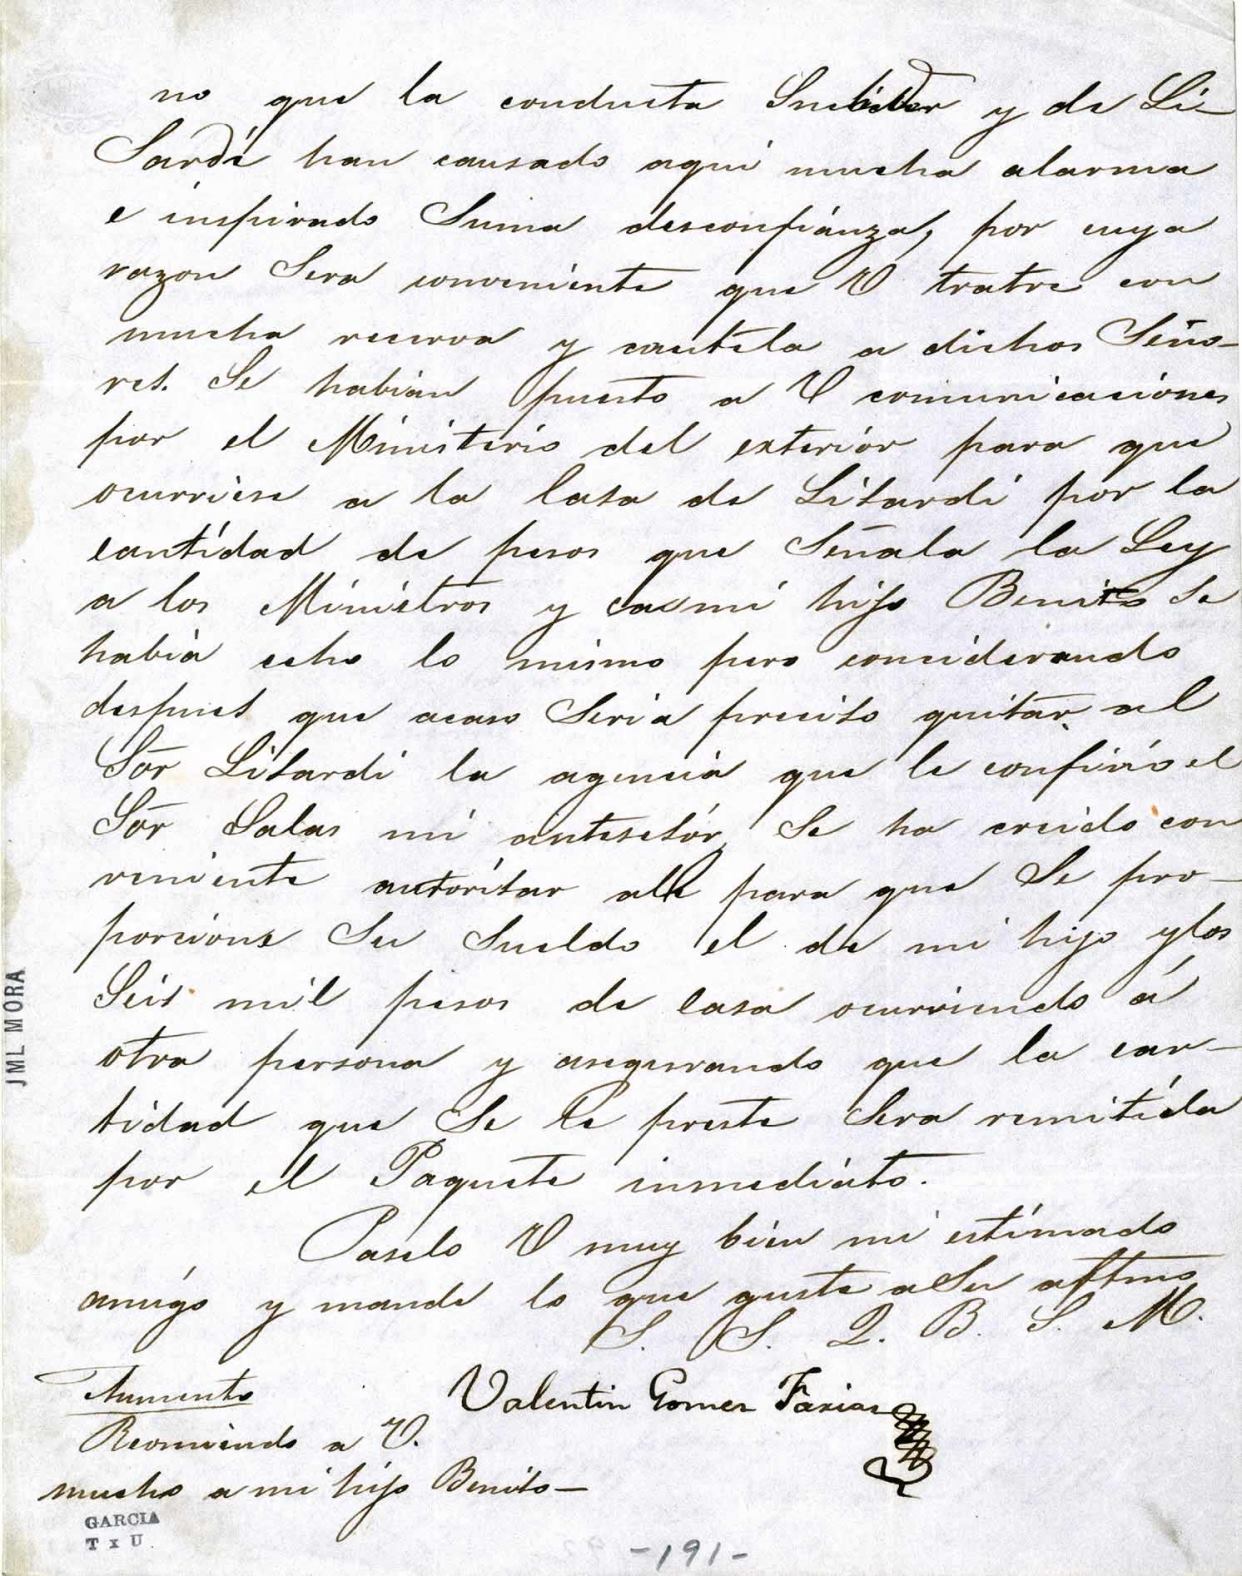 no que la conducta y de Li-
Sardi han causado aqui mucha alarma
e inspirado Suma desconfianza, por cuya
razon Sera conveniente que V tratre con
mucha reserva y cautela a dichos Seño-
res. Se habian puesto a V comunicaciones
por el Ministerio del exterior para que
ocurriese a la Casa de Lisardi por la
cantidad de pesos que Señala la Ley
a los Ministros y mi hijo Benito se
habia echo lo mismo pero considerando
despues que acaso Seria preciso quitar al
Sōr Lisardi la agencia que le confirio el
Sōr Salas mi antesesór, Se ha creido con
veniente autorisar para que Se pro-
porcione Su Sueldo el de mi hijo y los
Seis mil pesos de casa ocurriendo á
otra persona y asegurando que la can-
tidad que Se le preste Sera remitida
por el Paquete inmediato.
Paselo V muy bien mi estimado
amigo y mande lo que guste a Su aftmo
S. S. Q. B. S. M.
Valentin Gomez Farias
Aumento
Recomiendo a V.
mucho a mi hijo Benito-
GARCIA
T x U
JML MORA
-191-